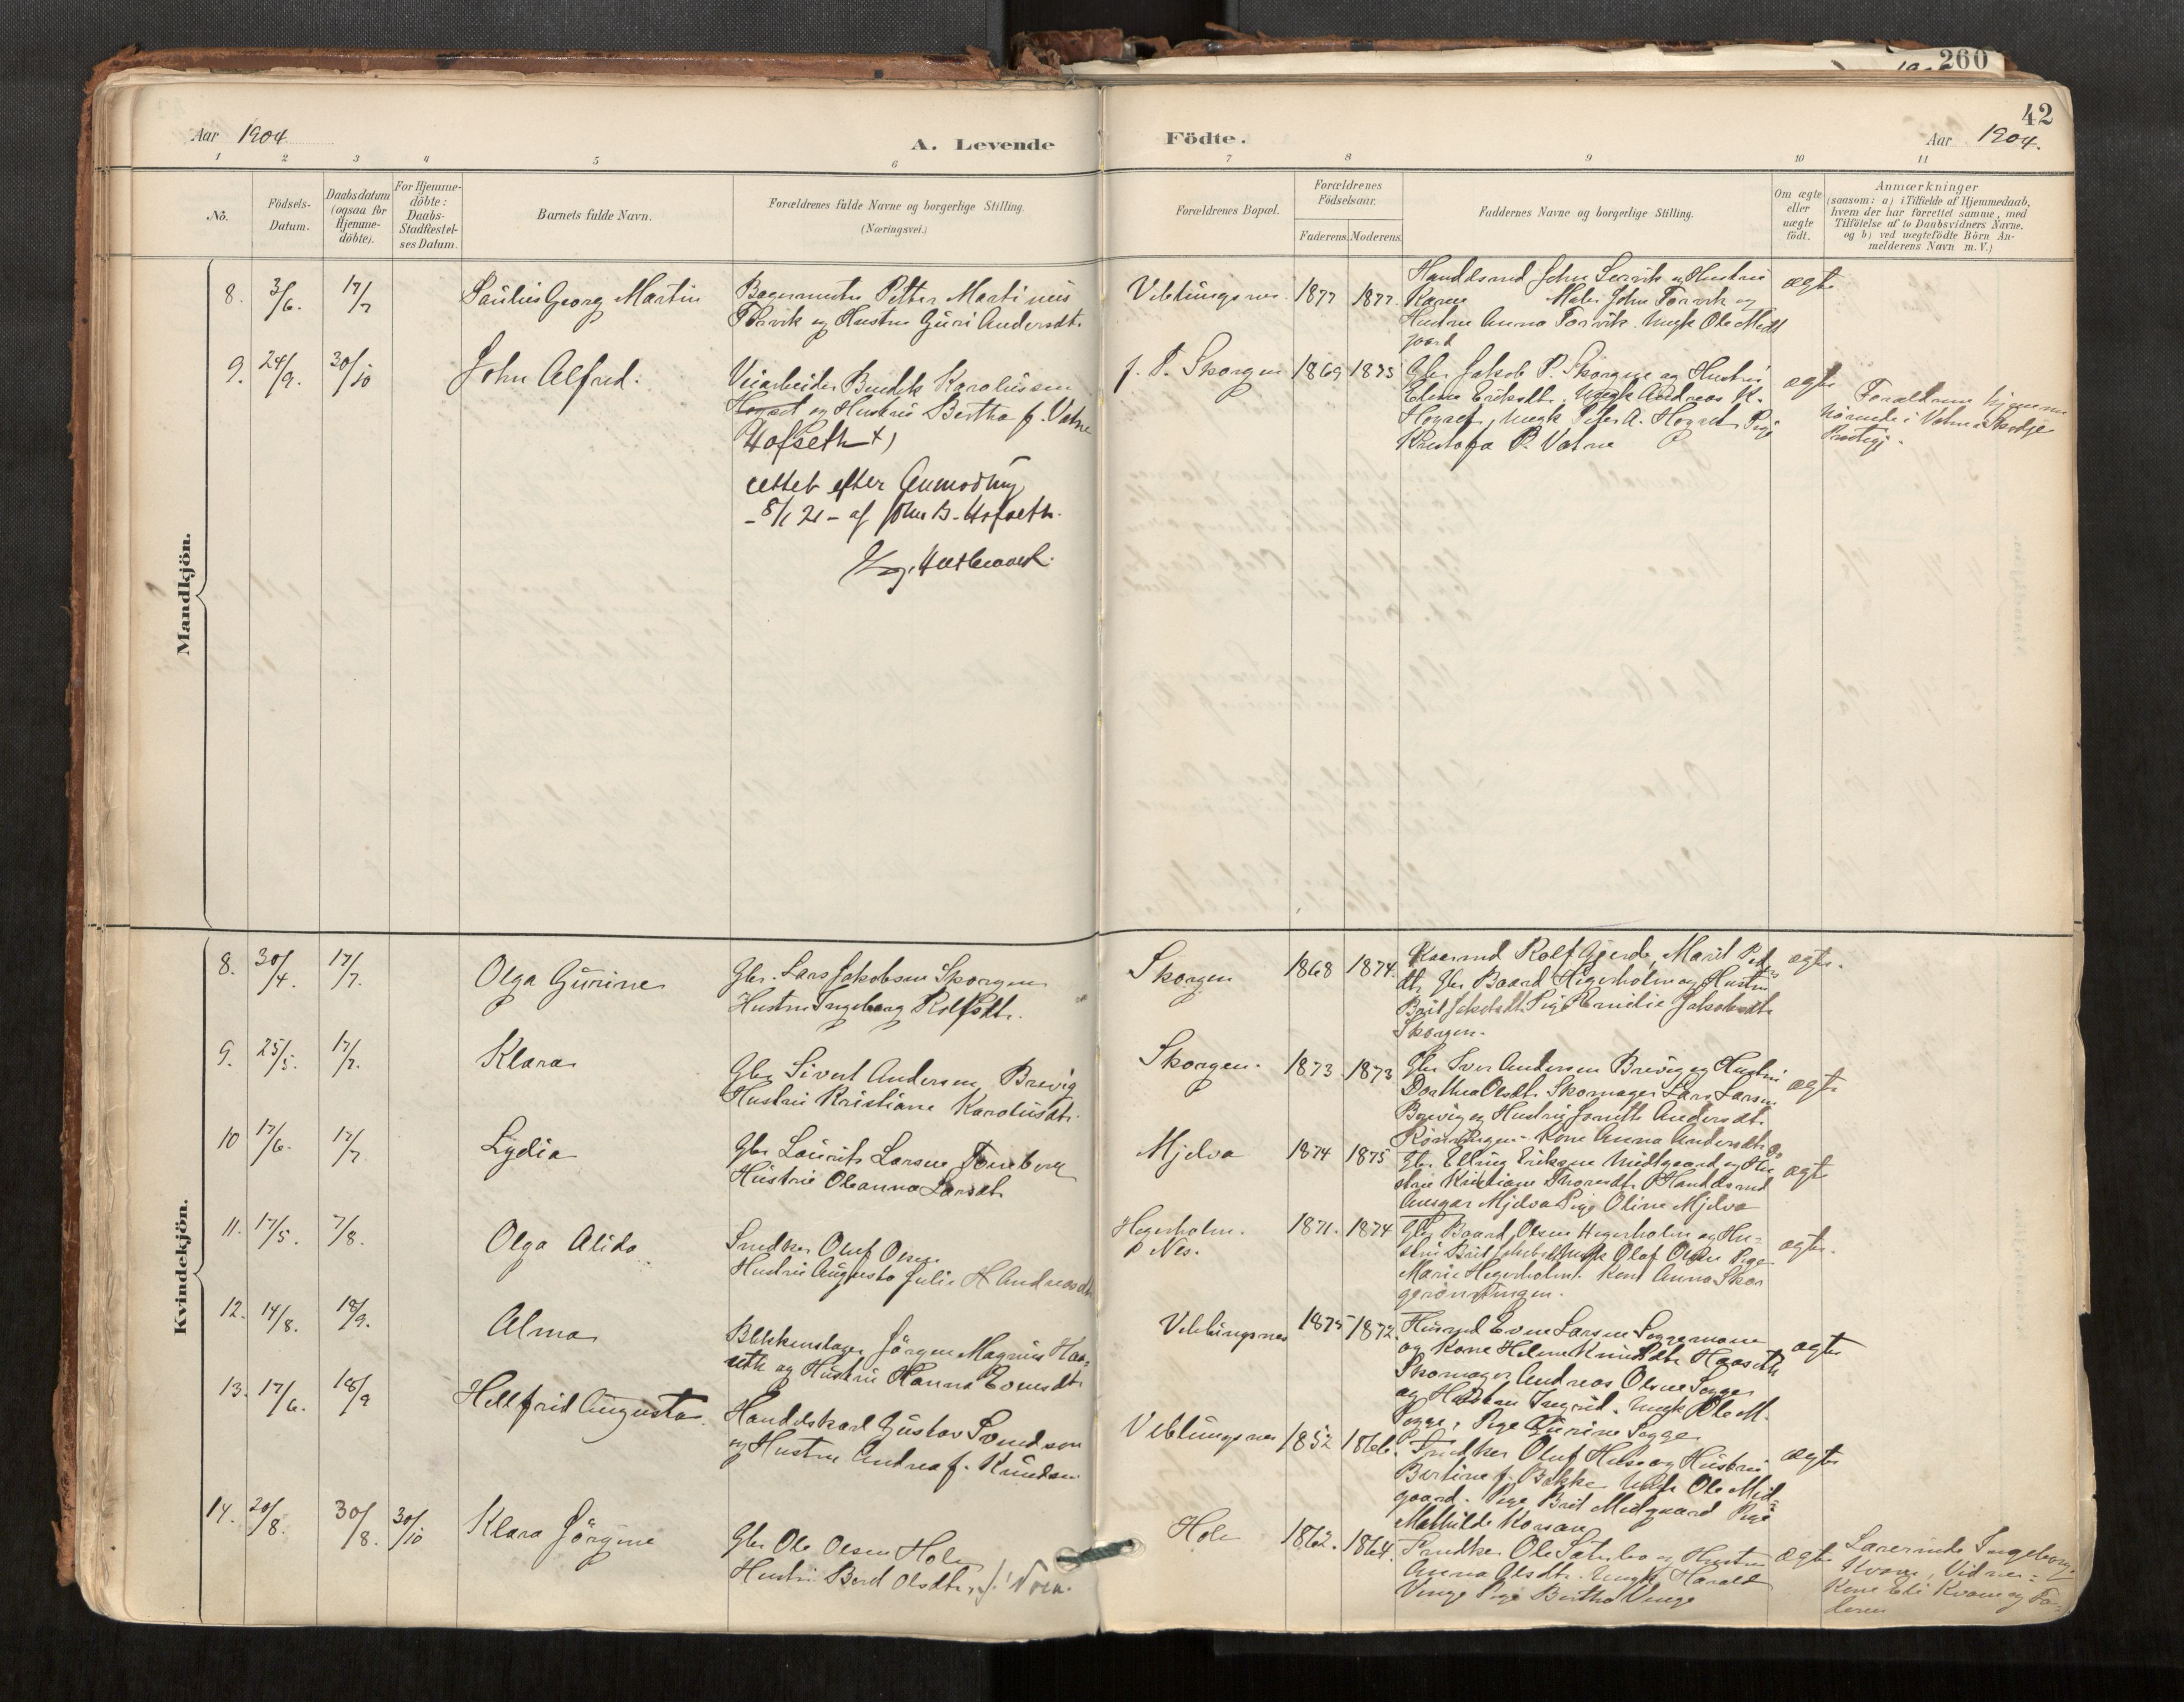 260
42
Aar 1904
A. Levende Födte.
Aar 1904.
1 2 3 4 5 6 7 8 9 10 11
No.
Födsels-Datum.
Daabsdatum (ogsaa for Hjemme-döbte).
For Hjemme-döbte: Daabs-Stadfæstel-ses Datum.
Barnets fulde Navn.
Forældrenes fulde Navne og borgerlige Stilling.
(Næringsvei.)
Forældrenes Bopæl.
Forældrenes Födselsaar.
Faderens. Moderens.
Faddernes Navne og borgerlige Stilling.
Om ægte eller uægte födt.
Anmærkninger
(saasom: a) i Tilfælde af Hjemmedaab,
hvem der har forrettet samme, med
Tilföielse af to Daabsvidners Navne.
og b) ved uægtefödte Börn An-
melderens Navn m. V.)
Mandkjön.
8. 3/6. 17/7 Georg Martin
Petter Martinus
og Hustru Guri Andersdt.
Veblungsnes 1877 1877.
Handelsmd John og Hustru
Karen Maler John Torvik og
Hustru Anna Torvik. Ungk Ole Midt
gaard
ægte
9. 24/9. 30/10 John Alfred.
Veiarbeider Bendik Karoliussen
og Hustru Bertha f. Vatne
Hofseth +)
rettet efter Anmodning
- 8/1 21 - af John B. Hofseth.
f. T. Skorgen 1869 1875
Gbr Jakob P. Skorgen og Hustru
Eriksdt. Ungk Andreas K.
Ungk Peter A. Pige
P. Vatne
ægte
Forældrene hjemme
hörende i Vatne Skodje
Prestegj.
Kvindekjön.
8. 30/4. 17/7. Olga Gurine
Gbr. Lars Jakobsen Skorgen
Hustru Ingeborg Rolfsdt.
Skorgen 1868 1874.
Rolf Gjerde, Marit Peders
dt, Gbr Baard Hegerholm og Hustru
Brit Jakobsdt Pige Emilie Jakobsdt
Skorgen.
ægte.
9. 25/5. 17/7. Klara
Gbr Sivert Andersen Brevig
Hustru Kristiane Karolusdt.
Skorgen. 1873 1873
Gbr Iver Andersen Brevig og Hustru
Dorthea Olsdt. Skomager Lars Larsen
Brevig og Hustru Andersdt.
Kone Anna Andersdt
ægte
10 17/6. 17/7 Lydia
Gbr Laurits Larsen
Hustru Oleanna Larsdt
Mjelva 1874 1875
Gbr Elling Eriksen Midtgaard og Hu
stru Kristiane Handelsmd
Ansgar Mjelva Pige Oline Mjelva
ægte
11. 17/5. 7/8. Olga Alida
Snedker Oluf Olsen
Hustru Augusta Julie H Andreasdt
Hegerholm.
p Nes. 1871. 1874
Gbr Baard Olsen Hegerholm og Hu-
stru Brit Jakobsdt Ungk Olaf Olsen Pige
Marie Hegerholm. Kone Anna Skor
ægte.
12. 14/8. 18/9. Alma
Blikkenslager Jörgen Magnus Haa-
seth og Hustru Hanna Evensdt
Veblungsnes 1875 1872.
Husmd Even Larsen
og Kone Helene Knudsdt Haaseth
Skomager Andreas Olsen Sogge
og Hustru Ingrid. Ungk Ole M.
Sogge, Pige Gurine Sogge
ægte
13. 17/6. 18/9 Hellfrid Augusta.
Handelskarl Gustav Svendsen
og Hustru Andrea f. Knudsen
Veblungsnes 1852 1866.
Snedker Oluf og Hustru
Bertine f. Bakke Ungk Ole Mid-
gaard. Pige Brit Midgaard Pige
Mathilde
ægte
14. 20/8. 30/8. 30/10 Klara Jörgine
Gbr Ole Olsen Hole
Hustru Berit Olsdtr.
Hole 1862. 1864.
Snedker Ole og Hustru
Anna Olsdt. Ungk Harald
Venge Pige Bertha Venge
ægte
Lærerinde Ingeborg
Kvam, Vidner:
Kone Eli Kvam og Fa-
deren